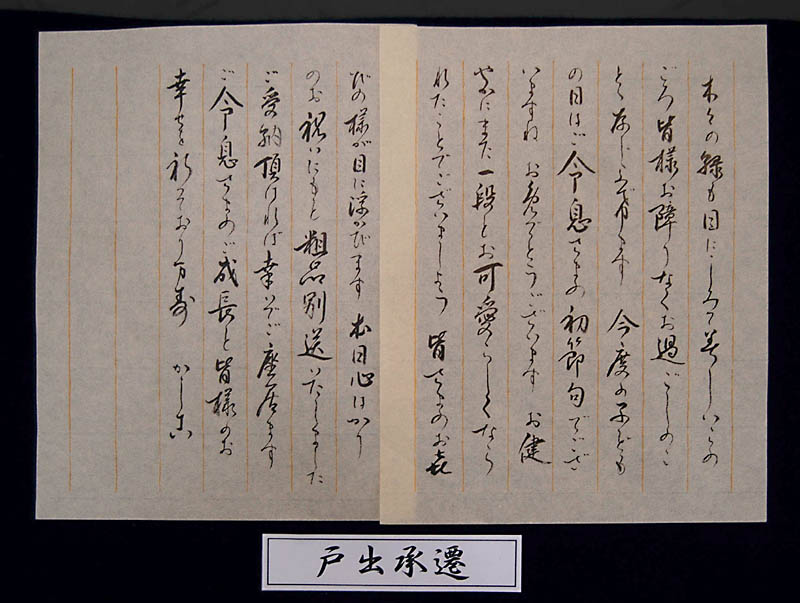 木々の緑も目にしみて美しいこの
ごろ皆様お障りなくお過ごしのこ
とと存じます 今度の子ども
の日はご令息さまの初節句でござ
いますね おめでとうございます お健
やかにまた一段とお可愛らしくなら
れたことでございましょう 皆さまのお喜
びの様が目に浮かびます 本日心ばかり
のお祝いにもと粗品別送いたしました
ご受納頂ければ幸いでございます
ご令息さまのご成長と皆様のお
幸せを祈っております かしこ
戸出承遷